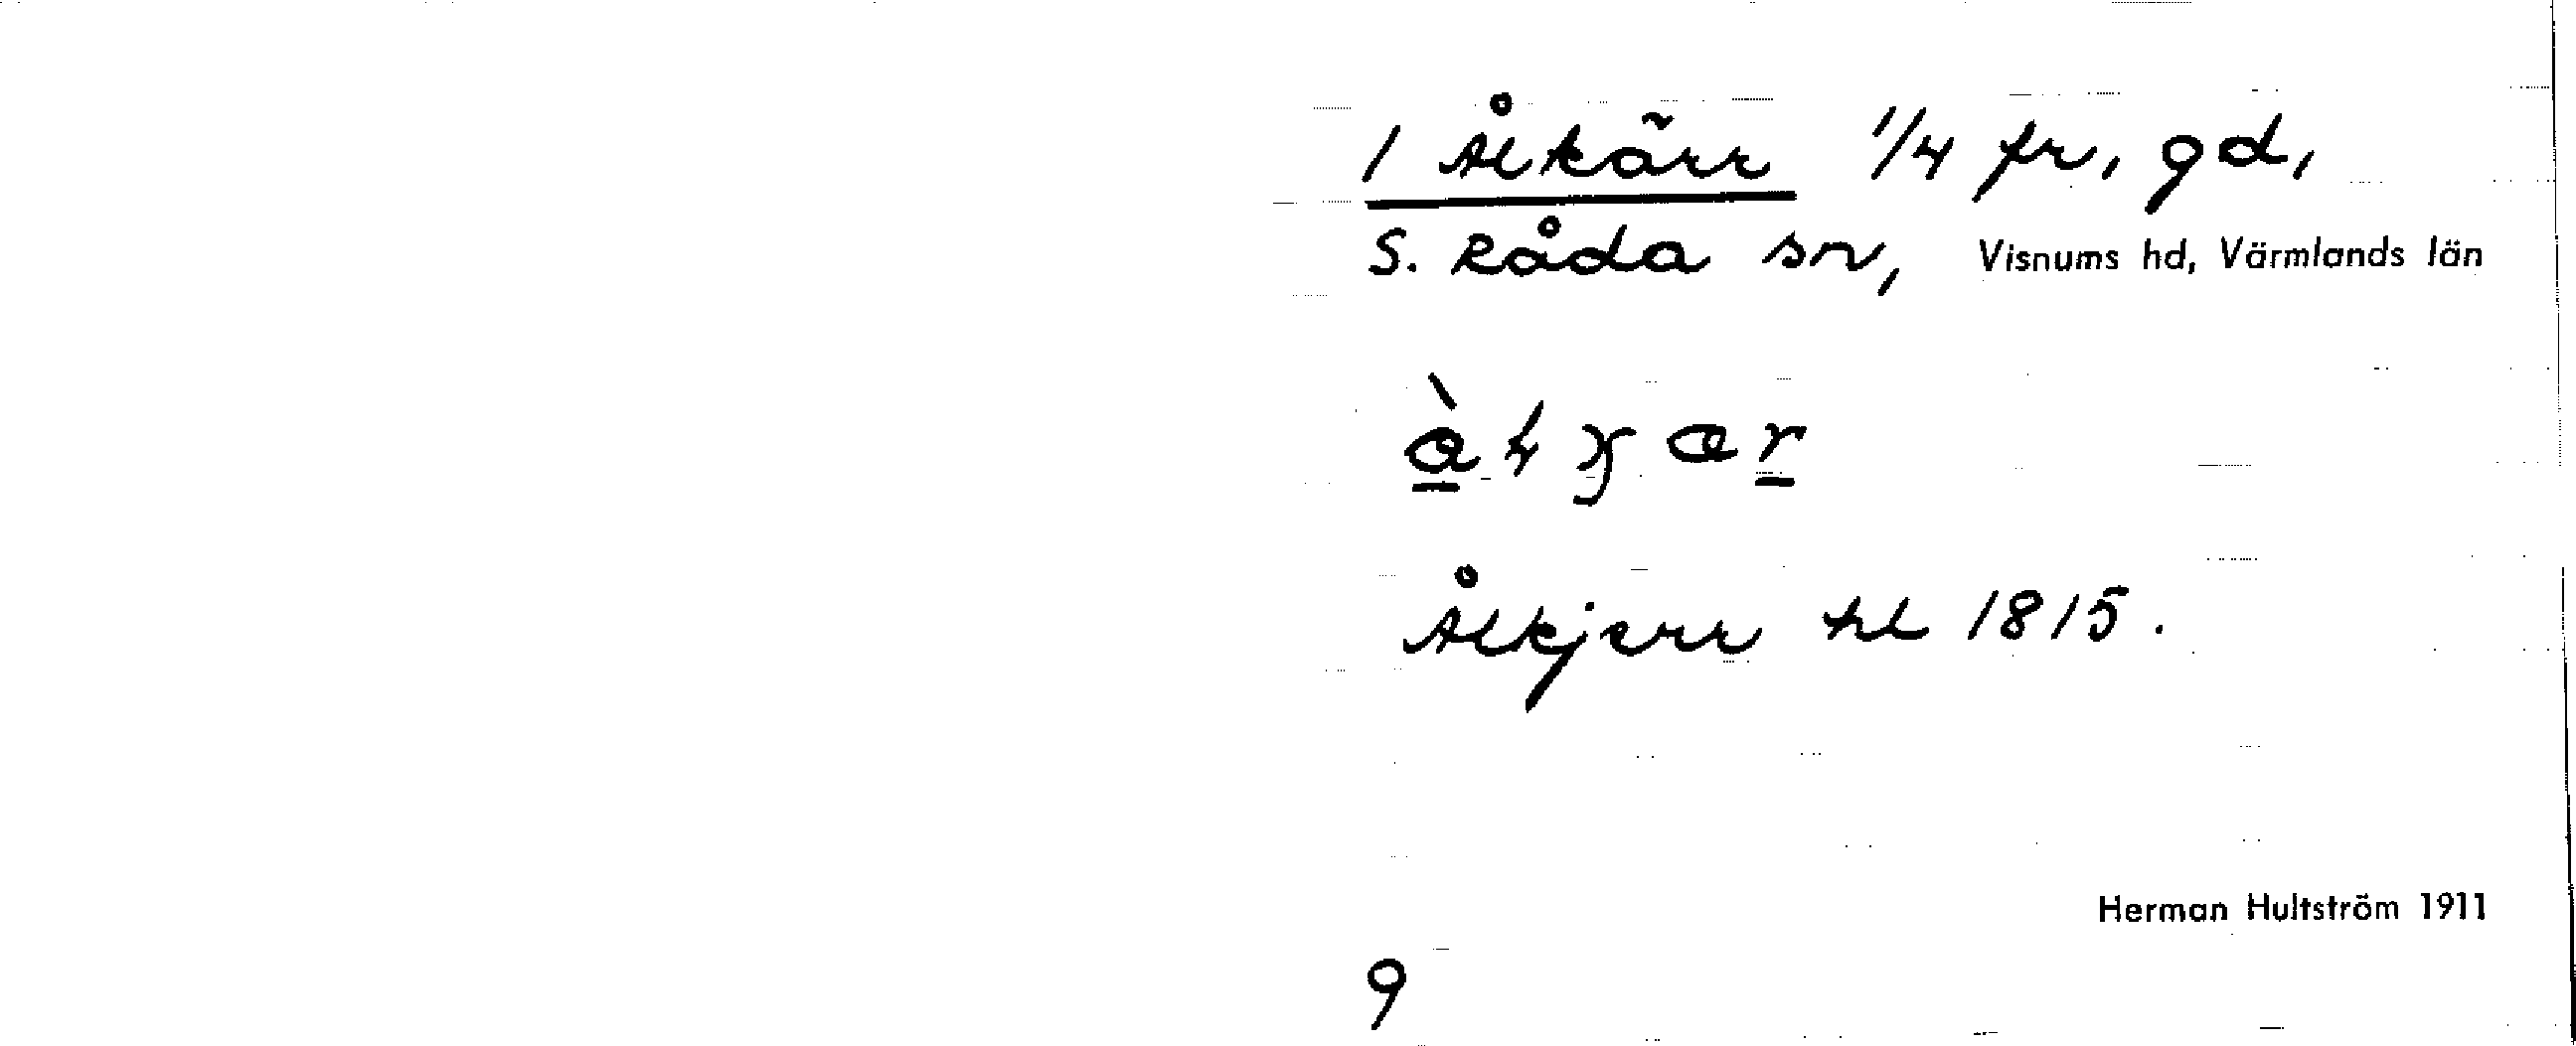 1 Ålkärr 1/4 fr, gd,
S. Råda sn, Visnums hd, Värmlands län
Ålkjerr hl 1815.
Herman Hultström 1911
9